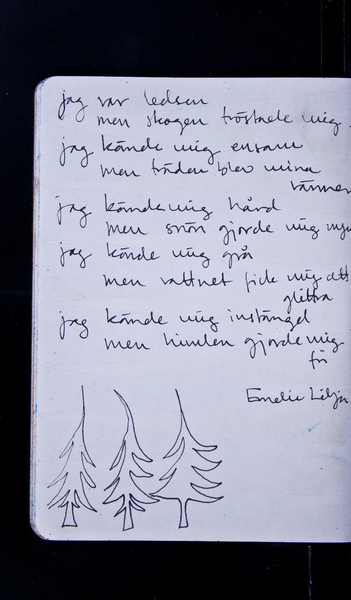 jag var ledsen
men skogen tröstade mig
jag kände mig ensam
men träden blev mina
vänner
jag kände mig hård
men snön gjorde mig
jag kände mig grå
men vattnet fick mig att
glittra
jag kände mig instängd
men himlen gjorde mig
fri
Emelie Lilja